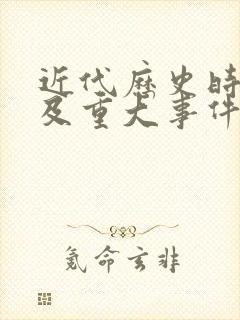 近代历史时
及重大事件
氪命玄非